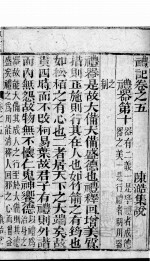 禮記卷之五
陳澔集說
禮器第十 器有二義一是學禮者成德
器之美一是行禮者明用器
之制
禮器是故大備大備盛德也禮釋回增美質
措則正施則行其在人也如竹箭之有筠也
如松栢之有心也二者居天下之大端矣故
貫四時而不改柯易葉故君子有禮則外諧
而內無怨故物無不懷仁鬼神饗德